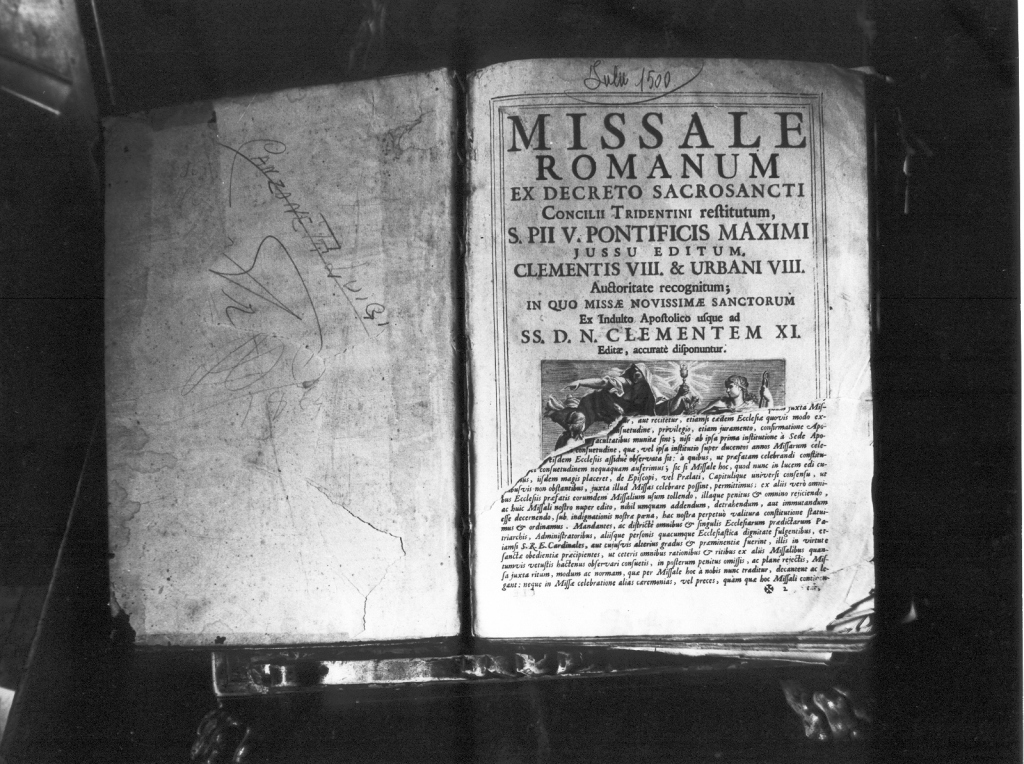 CANZONETTA LUIGI
1500
MISSALE
ROMANUM
EX DECRETO SACROSANCTI
CONCILII TRIDENTINI reſtitutum,
S. PII V. PONTIFICIS MAXIMI
JUSSU EDITUM,
CLEMENTIS VIII. & URBANI VIII.
Auctoritate recognitum;
IN QUO MISSÆ NOVISSIMÆ SANCTORUM
Ex Indulto Apoſtolico uſque ad
SS. D. N. CLEMENTEM XI.
Editæ, accuratè diſponuntur.
juxta Miſ-
aut recitetur, etiamſi eædem Eccleſiæ quovis modo ex-
ſuetudine, privilegio, etiam juramento, confirmatione Apo-
acultatibus munitæ ſint; niſi ab ipſa prima inſtitutione à Sede Apo-
conſuetudine, quæ, vel ipſa inſtitutio ſuper ducentos annos Miſſarum cele-
eiſdem Eccleſiis aſſiduè obſervata ſit: à quibus, ut præfatam celebrandi conſtitu-
conſuetudinem nequaquam auferimus; ſic ſi Miſſale hoc, quod nunc in lucem edi cu-
mus, iiſdem magis placeret, de Epiſcopi, vel Prælati, Capitulique univerſi conſenſu, ut
buſvis non obſtantibus, juxta illud Miſſas celebrare poſſint, permittimus; ex aliis verò omni-
bus Eccleſiis præfatis eorumdem Miſſalium uſum tollendo, illaque penitus & omnino rejiciendo,
ac huic Miſſali noſtro nuper edito, nihil umquam addendum, detrahendum, aut immutandum
eſſe decernendo, ſub indignationis noſtræ pœna, hac noſtra perpetuò valitura conſtitutione ſtatui-
mus & ordinamus. Mandantes, ac diſtrictè omnibus & ſingulis Eccleſiarum prædictarum Pa-
triarchis, Adminiſtratoribus, aliiſque perſonis quacumque Eccleſiaſtica dignitate fulgentibus, et-
iamſi S. R. E. Cardinales, aut cujuſvis alterius gradus & præminentiæ fuerint, illis in virtute
ſanctæ obedientiæ præcipientes, ut ceteris omnibus rationibus & ritibus ex aliis Miſſalibus quan-
tumvis vetuſtis hactenus obſervari conſuetis, in poſterum penitus omiſſis, ac planè rejectis, Miſ-
ſa juxta ritum, modum ac normam, quæ per Miſſale hoc à nobis nunc traditur, decantent ac le-
gant: neque in Miſſæ celebratione alias cæremonias, vel preces, quàm quæ hoc Miſſali continen-
2